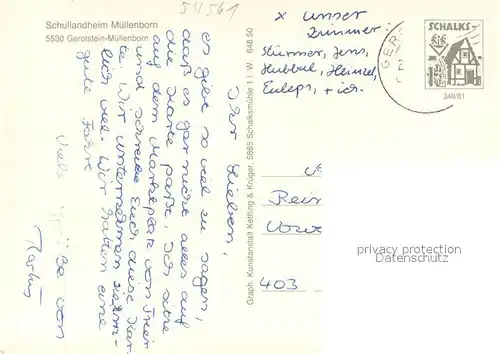 54561
Schullandheim Müllenborn
5530 Gerolstein-Müllenborn
x unser
Zimmer:
Stürmer, Jens,
Hubbel, Heimel,
Euleps, + ich.
SCHALKS
348/81
GER
Ihr Lieben,
es gibt so viel zu sagen,
daß es gar nicht alles auf
die Karte paßt. Ich sitze
auf dem Marktplatz von Trier
und schreibe Euch diese Kar-
te. Wir unternehmen ziem-
lich viel. Wir hatten eine
gute Fahrt
Viele Grüße von
Markus
Graph. Kunstanstalt Kettling & Krüger, 5885 Schalksmühle 11 W. 648.50
403
privacy protection
Datenschutz